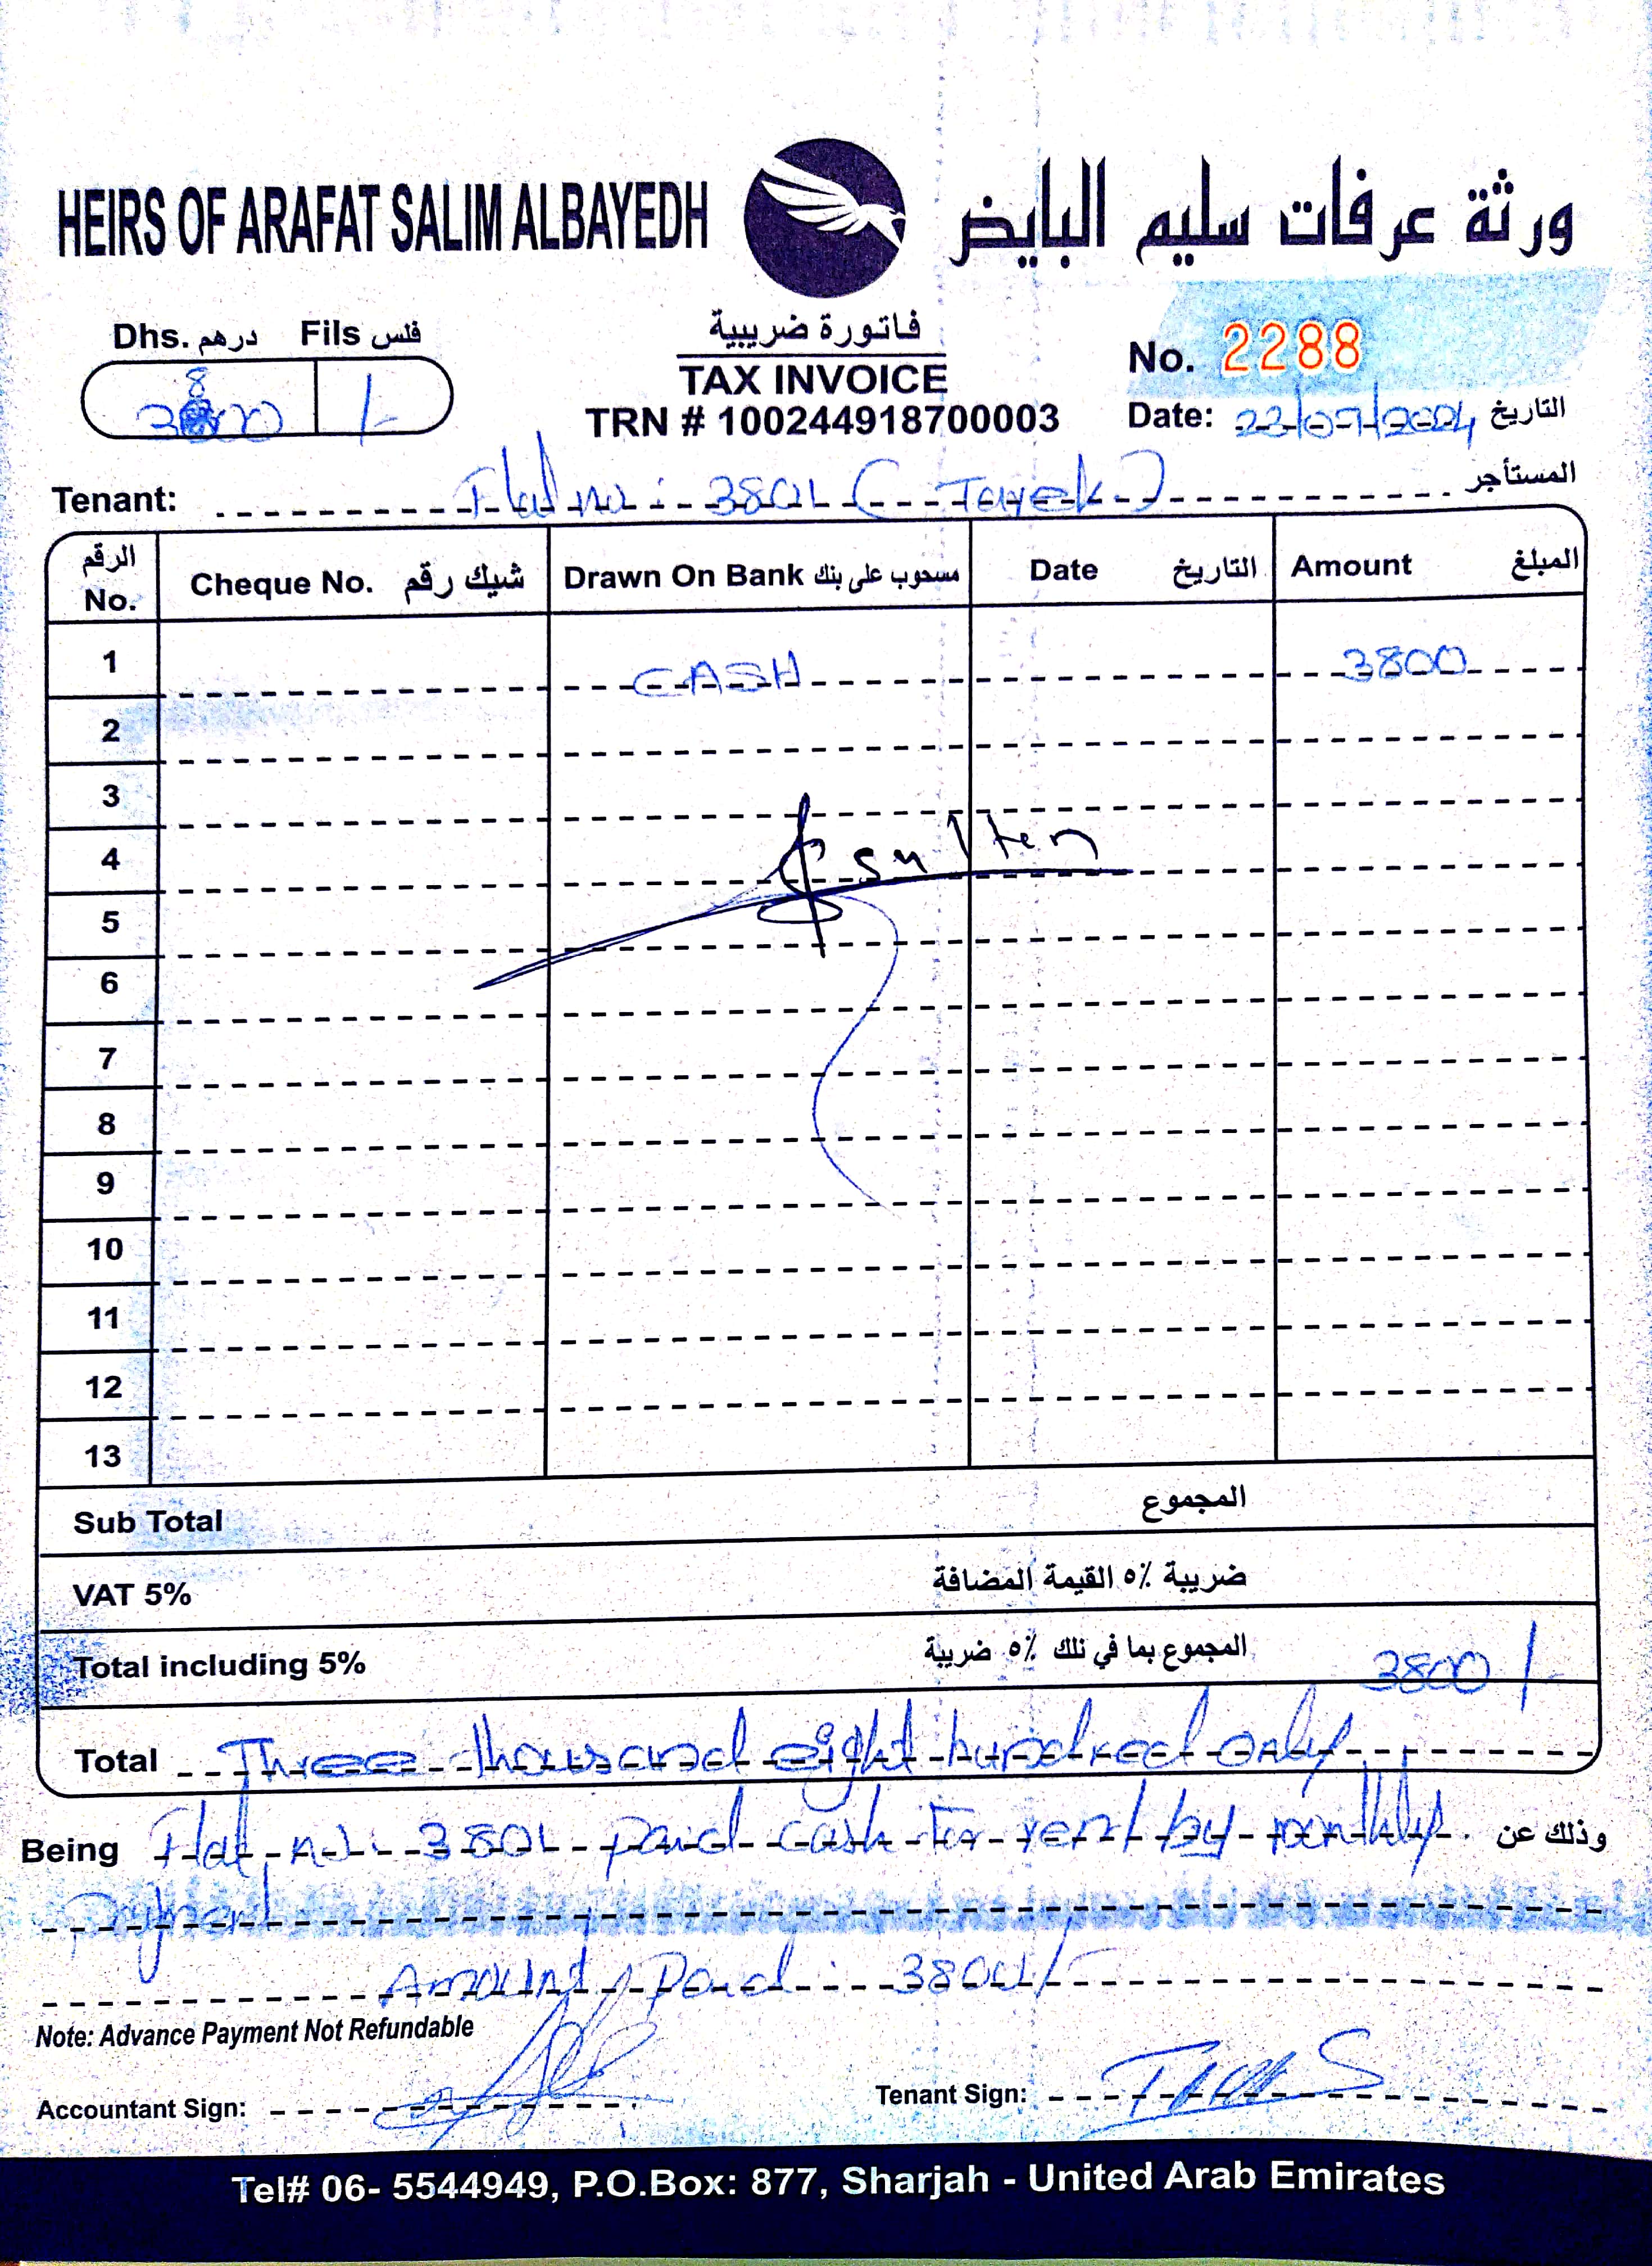 HEIRS OF ARAFAT SALIM ALBAYEDH
ورثة عرفات سليم البايض
Dhs. درهم Fils فلس
3800 /-
فاتورة ضريبية
TAX INVOICE
TRN # 100244918700003
No. 2288
Date: 22/07/2024 التاريخ
Tenant: Flat no: 3801 (Tayek) المستأجر
الرقم No. Cheque No. شيك رقم Drawn On Bank مسحوب على بنك Date التاريخ Amount المبلغ
1 CASH 3800
2
3
4 sulten
5
6
7
8
9
10
11
12
13
Sub Total المجموع
VAT 5% ضريبة ٥٪ القيمة المضافة
Total including 5% المجموع بما في ذلك ٥٪ ضريبة 3800/
Total Three thousand eight hundred only
Being Flat no: 3801 paid cash for rent by monthly وذلك عن
Payment
Amount Paid: 3800/-
Note: Advance Payment Not Refundable
Accountant Sign: Tenant Sign:
Tel# 06- 5544949, P.O.Box: 877, Sharjah - United Arab Emirates